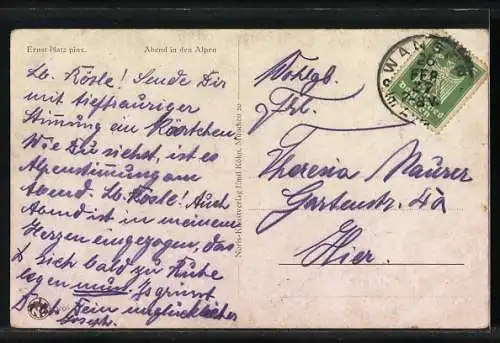 Ernst Platz pinx.
Abend in den Alpen
Lb. Rösle! Sende Dir
mit tieftrauriger
Stimmung ein Kärtchen.
Wie Du siehst, ist es
Alpenstimmung am
Abend. Lb. Rösle! Auch
Abend ist in meinem
Herzen eingezogen, das
sich bald zu Ruhe
legen muss. Es grüsst
Dich Dein unglücklicher
Joseph.
Noris-Kunstverlag Emil Köhn, München
WANG
FEB
27
Wohlgb.
Frl.
Theresia Maurer
Gartenstr. 4a
Hier.